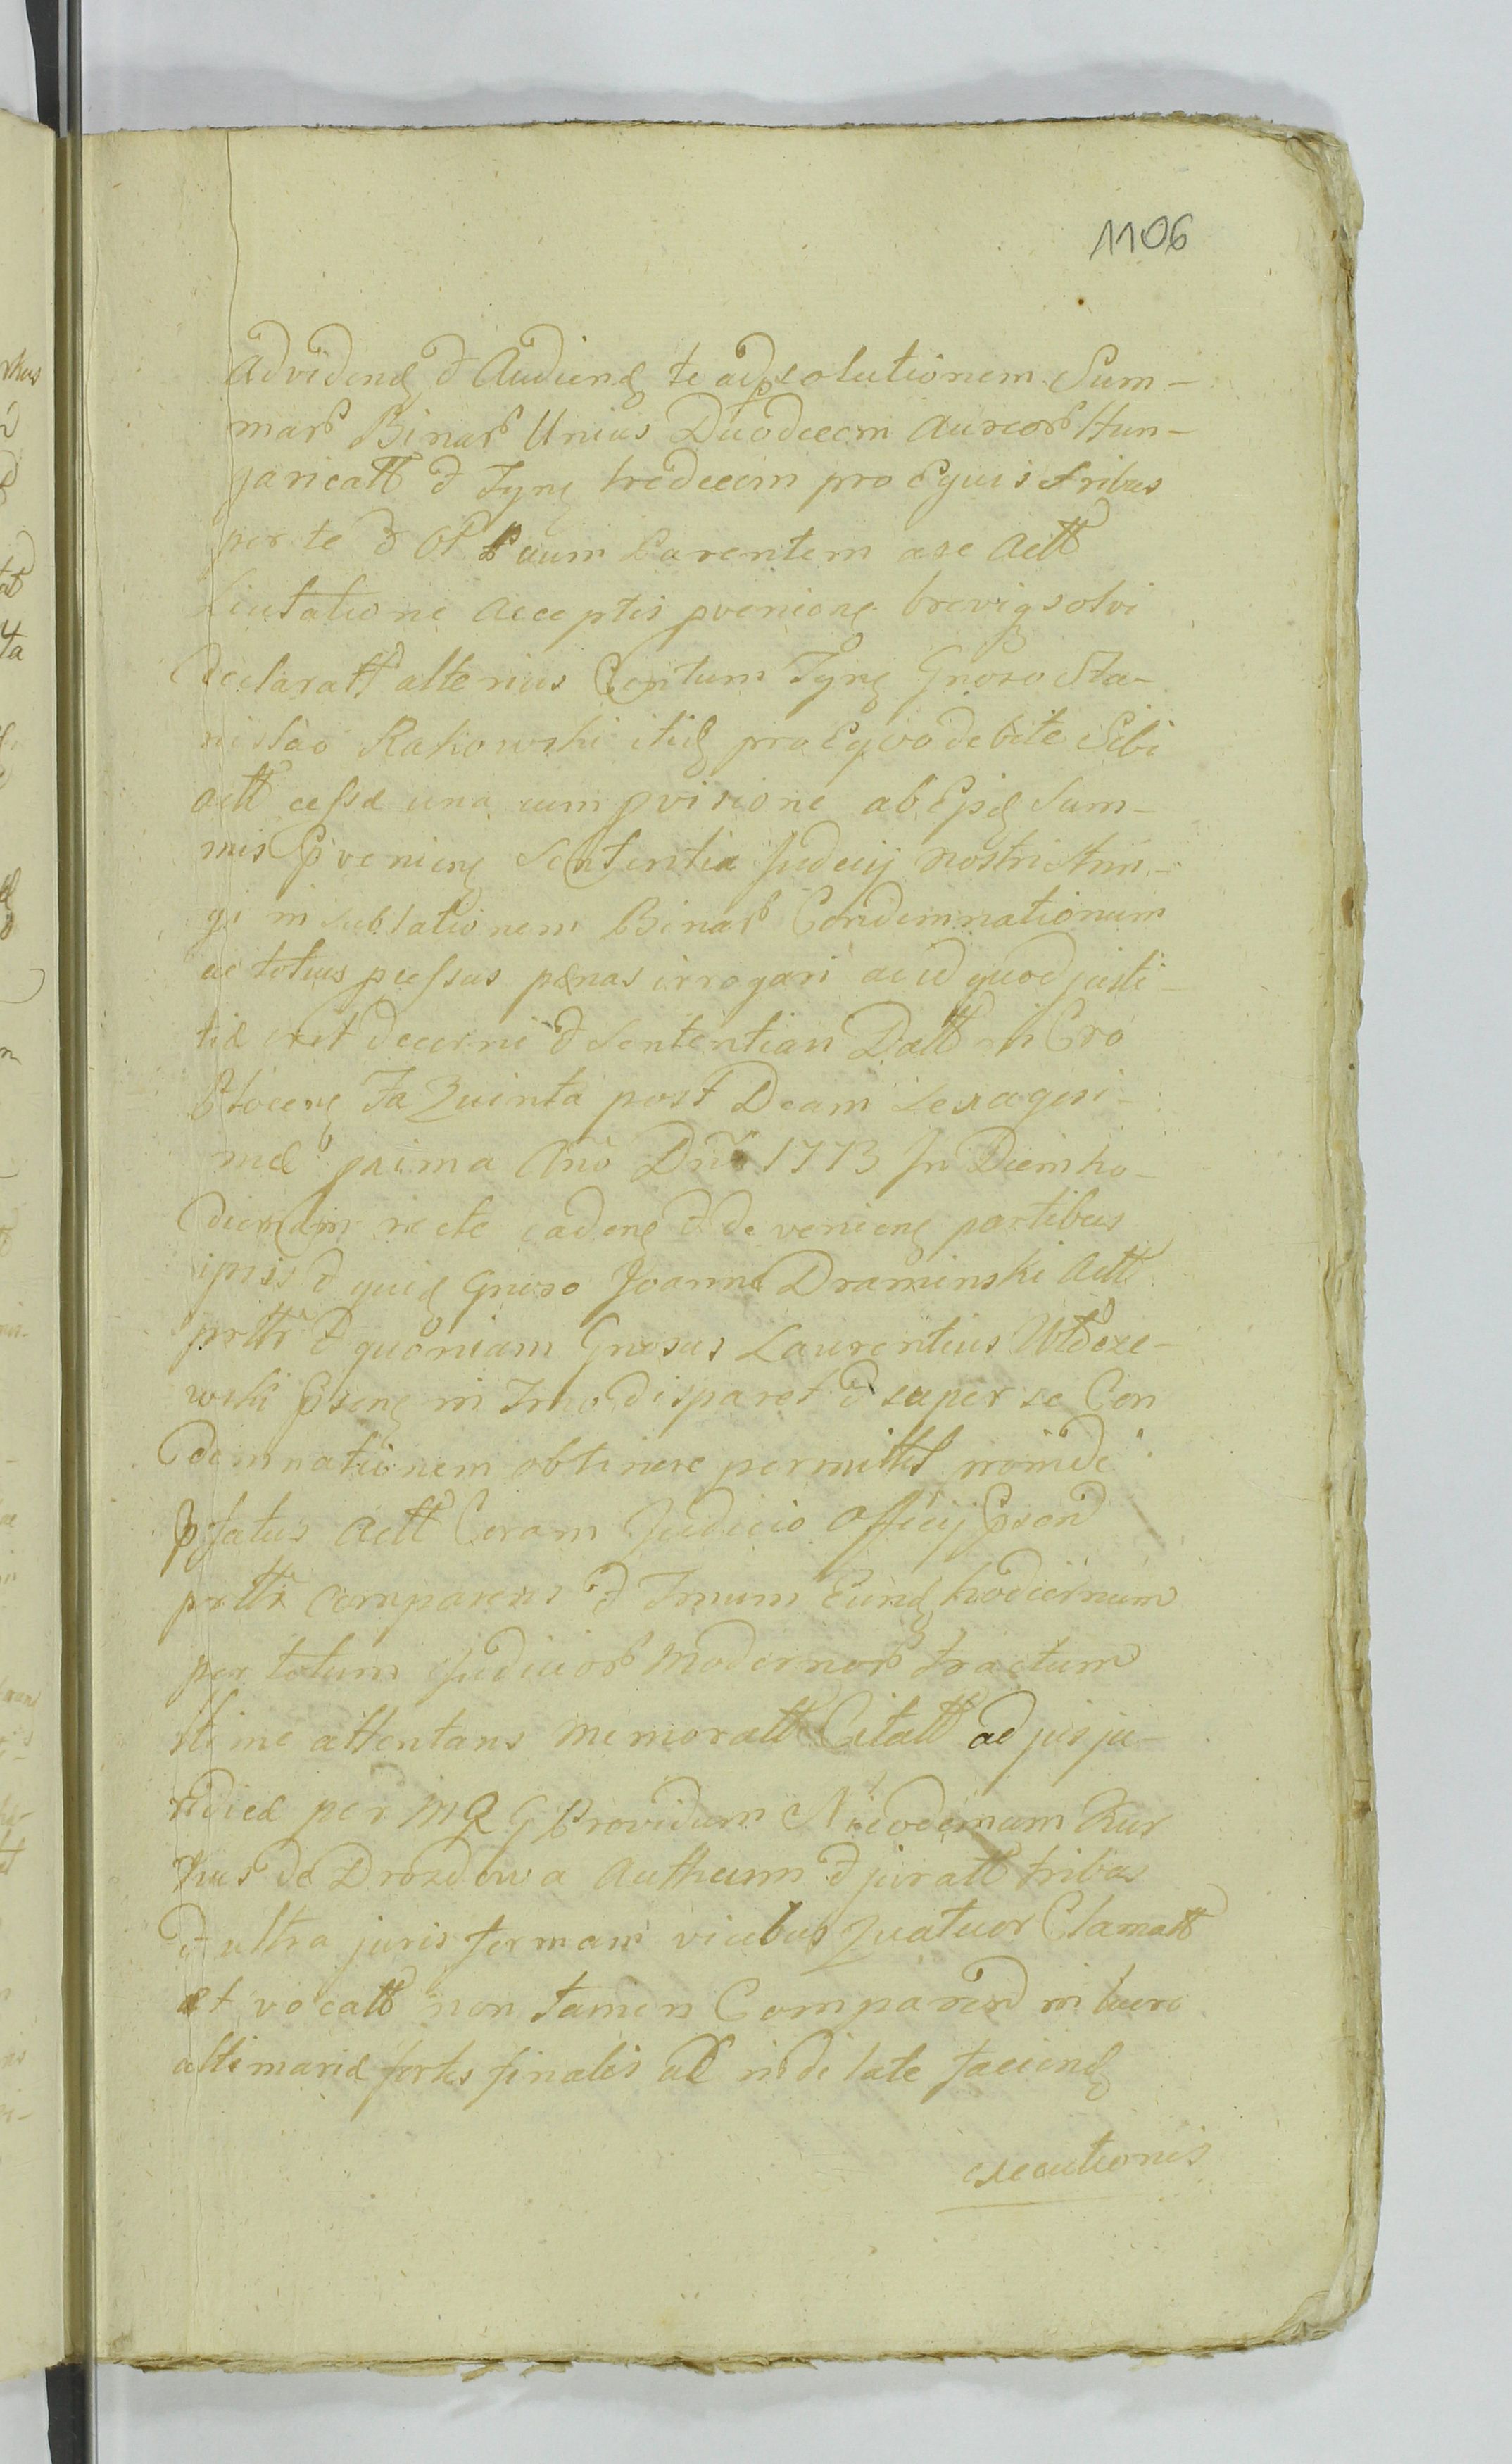 1106
Advidend & Audiend te ad solutionem Sum-
mar Binar Unius Duodecem Aureor Hun-
garicall & Tyng tredecem pro Equis tribus
per te & Ol Suum Parentem a se Actt
Licitatione Acceptis pvenieng brevig solvi
declaratt alterius Centum Tyng Gnoso Sta-
nislao Rakowski itid pro Equo debite Sibi
actt cessæ una cum pvisione ab Ejsd Sum-
mis pvenieng Sententia Judicij nostri Strin-
gi in sublationem Binar Condemnationum
ac totius pcessus pænas irrogari ac id quod justi-
tiæ erit decerni & Sententian Datt in Cro
Ploceng Fa Quinta post Dcam Sexagesi-
mæ prima Ano Dni 1773 In Diem ho-
diernam recte cadeng & devenieng partibus
ipsis & quid Gnoso Joanne Draminski Actt
prttr & quoniam Gnosus Laurentius
wski pseng in Trno disparet & super se Con
demnationem obtinere permittit proinde
pfatus Actt Coram Judicio Officij pseng
prttr comparens & Trnum Eund hodiernum
per totum Judicior modernor tractum
attentans memoratt Citatt ad jus ju-
ridicæ per MRG Providum Nicodemum Kur
de Drozdowa Authenm & juratt tribus
& ultra juris formam vicibus Quatuor Clamatt
et vocatt non tamen Comparen in lucro
ultimariæ fortis finalis ac inde late faciend
executionis